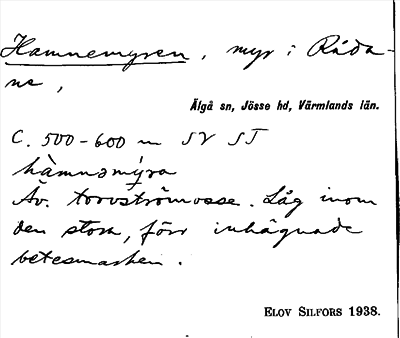 Hamnemyren, myr i Råda-
ne,
Älgå sn, Jösse hd, Värmlands län.
C. 500-600 m SV ST
hàmnəmy̌ra
Äv. torvströmosse. Låg inom
den stora, förr inhägnade
betesmarken.
ELOV SILFORS 1938.